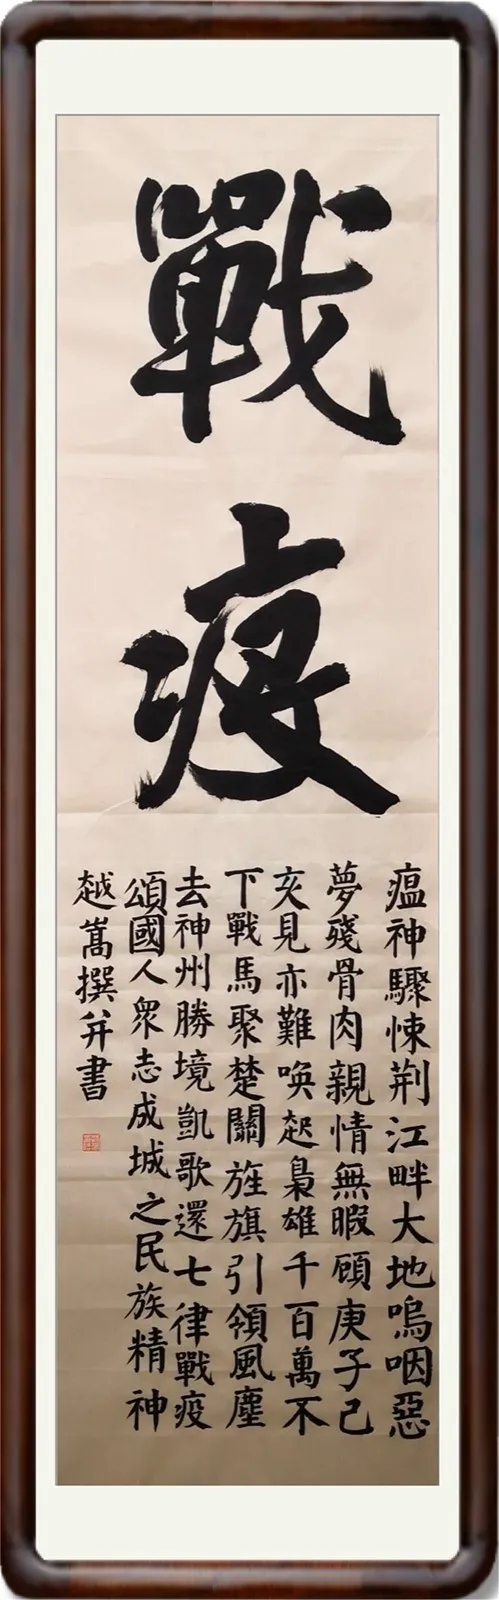 戰
疫
瘟神驟悚荆江畔大地嗚咽惡
夢殘骨肉親情無暇頋庚子己
亥見亦難喚起梟雄千百萬不
下戰馬聚楚關旌旗引領風塵
去神州勝境凱歌還七律戰疫
頌國人衆志成城之民族精神
越嵩撰并書